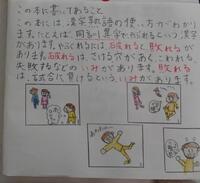 この本に書いてあること
この本には、漢字熟語の使い方がわかり
ます。たとえば、同訓異字でやぶれるという漢字
があります。やぶれるには、破れると敗れるが
あります。破れるは、さける穴があく、こわれる、
失敗するなどのいみがあります。敗れる
は、試合に負けるといういみがあります。